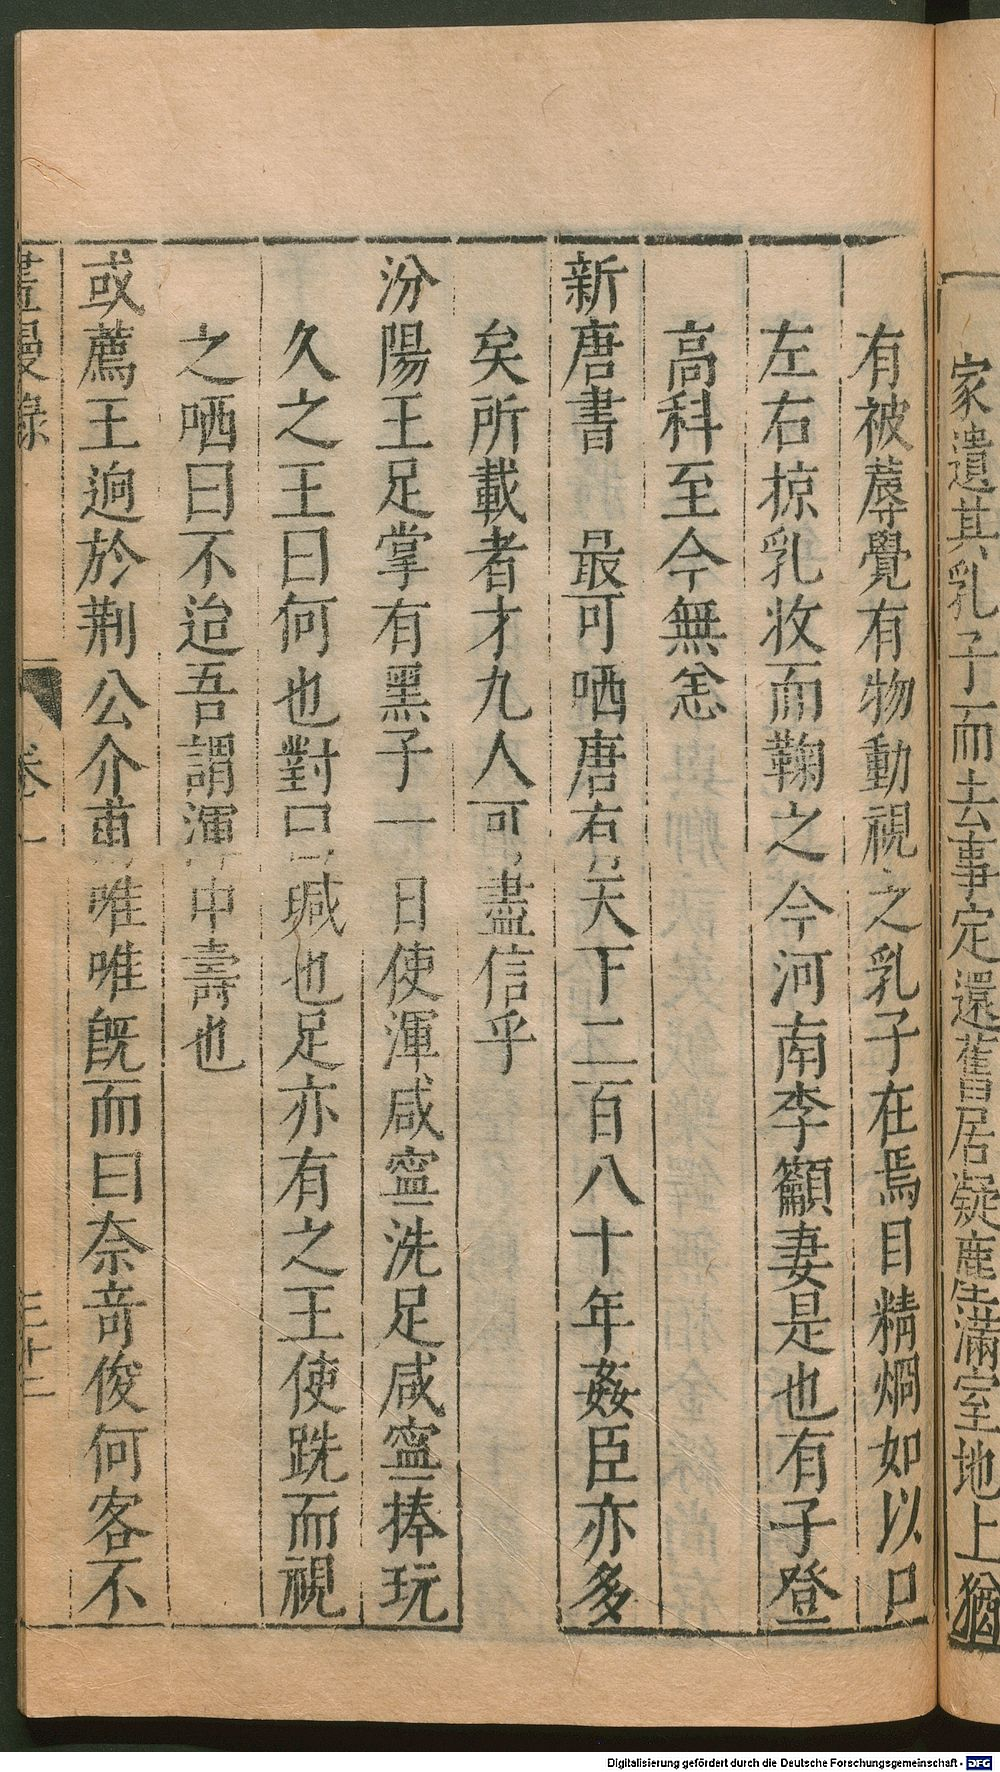 家遺其乳子而去事定還舊居凝塵滿室地上猶
有被蓐覺有物動視之乳子在焉目精烱如以口
左右掠乳收而鞠之今河南李籲妻是也有子登
高科至今無恙
新唐書 最可哂唐有天下二百八十年姦臣亦多
矣所載者才九人可盡信乎
汾陽王足掌有黑子一日使渾咸寧洗足咸寧捧玩
久之王曰何也對曰瑊也足亦有之王使跣而視
之哂曰不迨吾謂渾 中壽也
或薦王逈於荆公介甫唯唯旣而曰奈奇俊何客不
畫墁錄 卷一 三十二
Digitalisierung gefördert durch die Deutsche Forschungsgemeinschaft - DFG